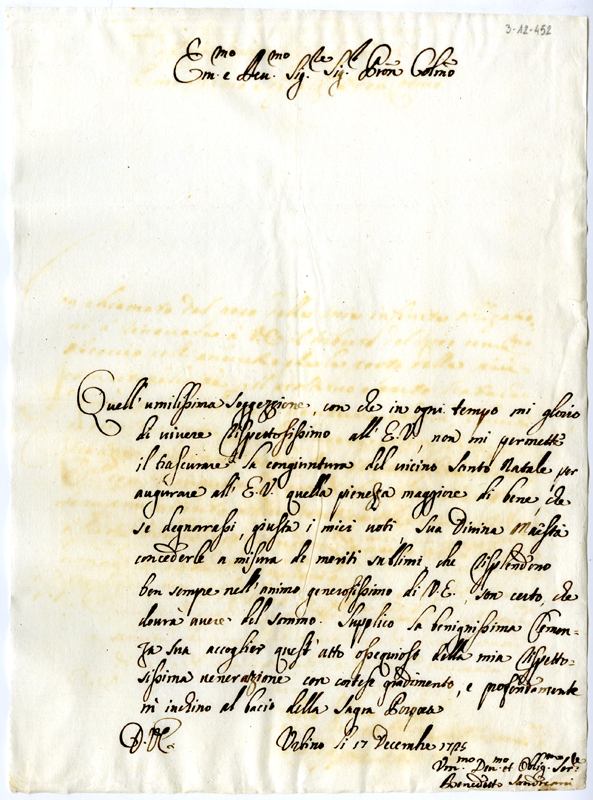 3-12-452
Em.mo e Reu.mo Sig.re Sig.r Pron Colmo
Quell'umilissima soggezzione, con che in ogni tempo mi glorio
di viuere rispettosissimo all'E.V., non mi permette
il trascurare la congiuntura del vicino Santo Natale, per
augurare all'E.V. quella pienezza maggiore di bene, che
se degnarassi, giusta i miei voti, Sua Diuina Maestà
concederle a misura de meriti sublimi, che risplendono
ben sempre nell'animo generosissimo di V.E., son certo, che
dourà auere del sommo. Supplico la benignissima Clemen-
za sua accoglier quest'atto ossequioso della mia rispetto-
sissima uenerazione con cortese gradimento, e profondamente
m'inchino al bacio della Sagra Porpora
Urbino li 17 Decembre 1725
Um.mo Deu.mo et Obblig. Ser.re
Benedetto